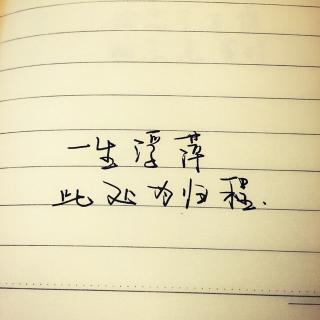 一生浮萍
此处为归程.